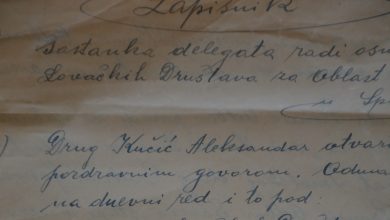 Zapisnik
Sastanka delegata radi osn
Lovačkih Društava za Oblast
u Sp
Drug Kučić Aleksandar otvar
pozdravnim govorom. Odma
na dnevni red i to pod: